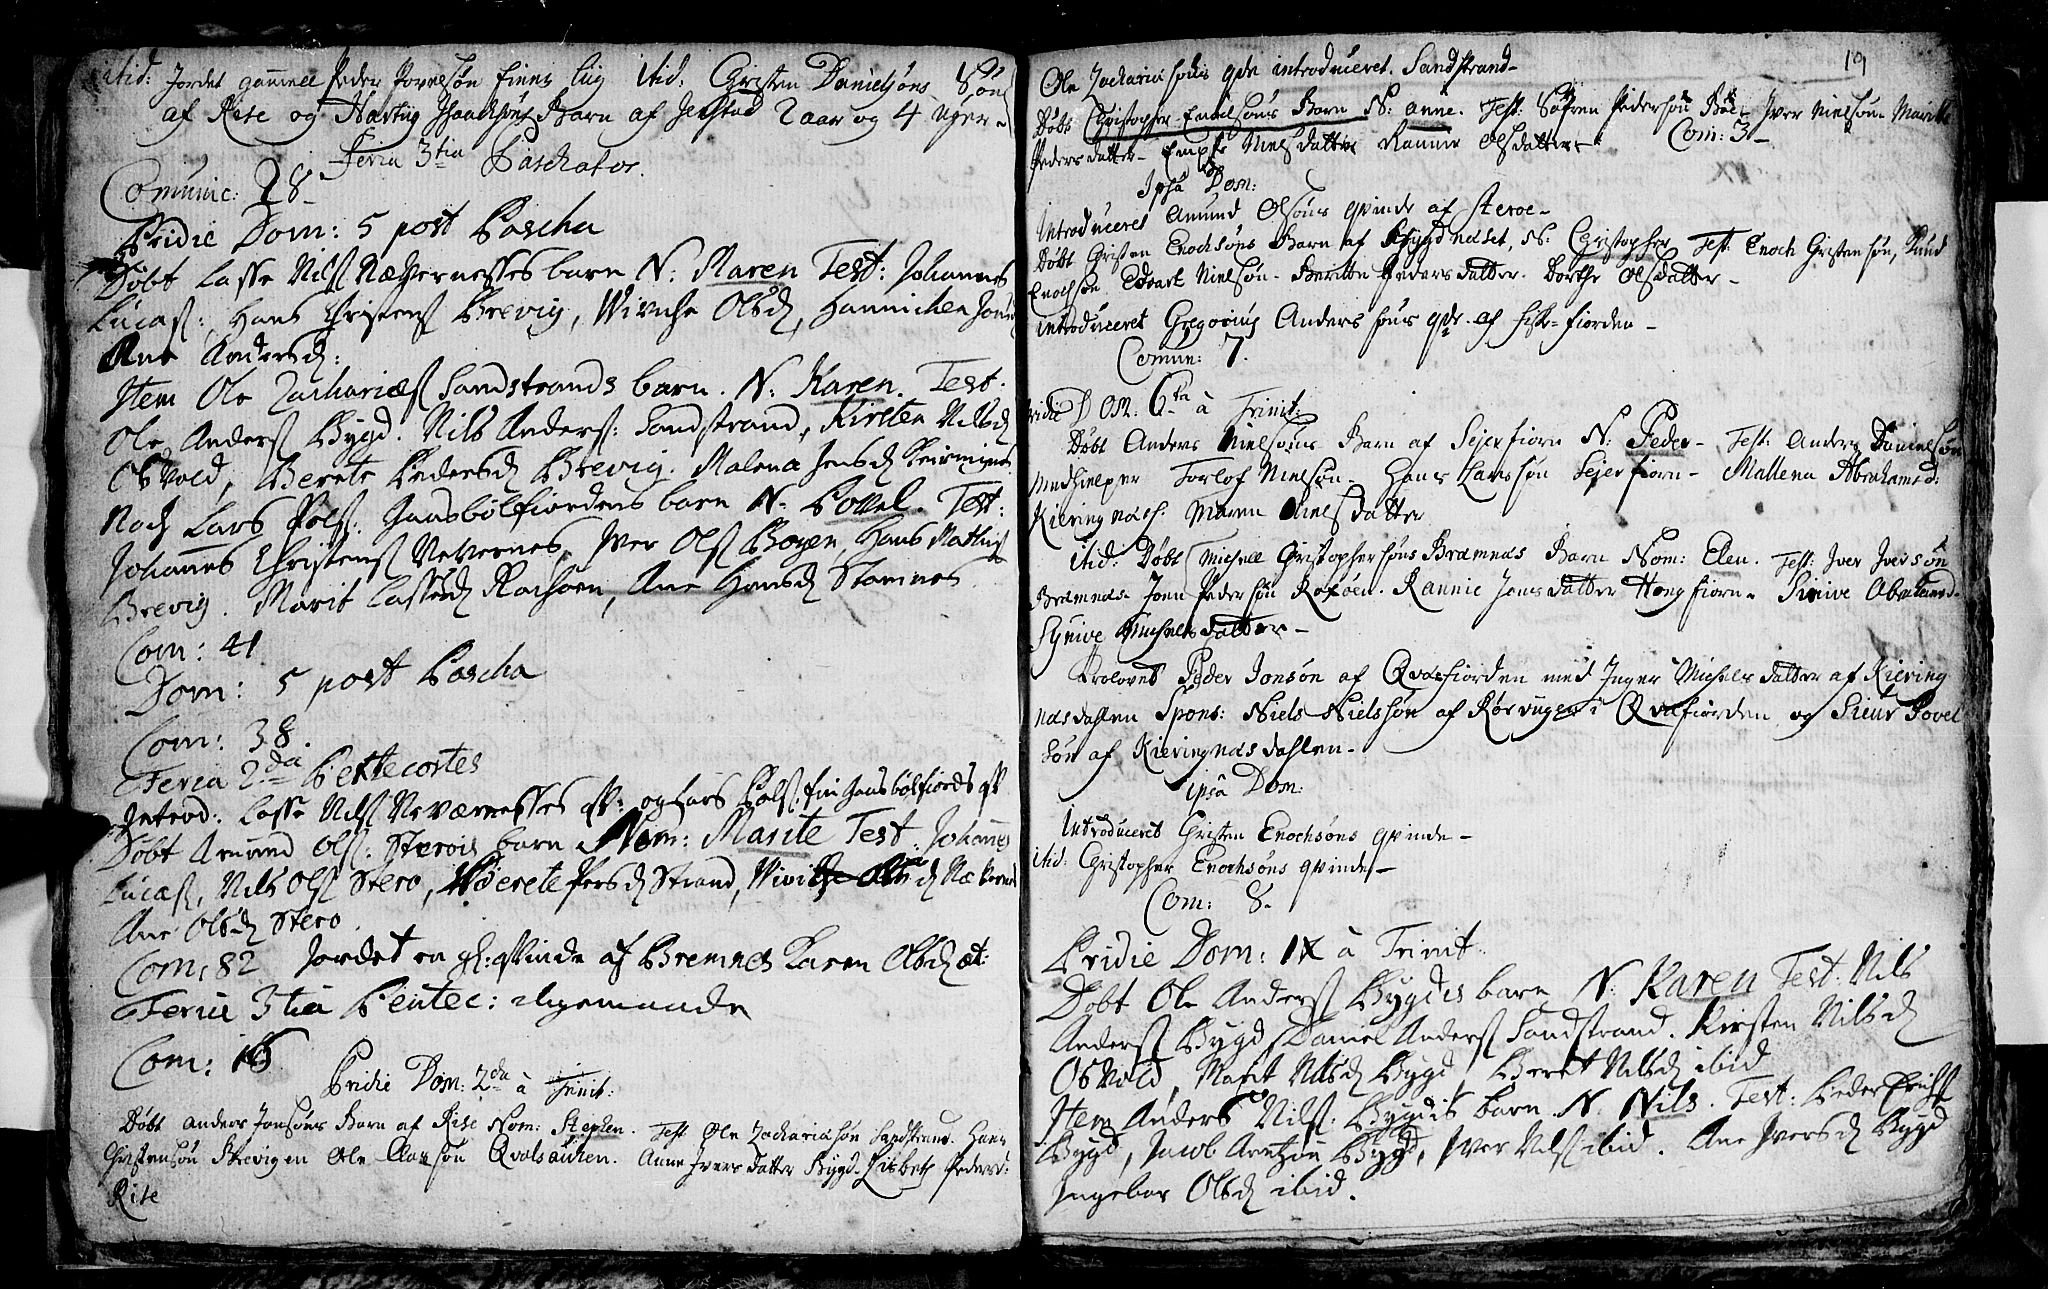 itid: Jordet gammell Peder Povelsøn finns liig itid: Christen Danielsøns Søn
af Rise og Hartvig Isaachsøns Barn af Jerstad 2 aar og 4 uger
Feria 3tia Paschatos.
Comunic: 28
Pridie Dom: 5 post Pascha
Døbt Lasse Nils Nævernesses barn N: Maren Test: Johannes
Lucas:, Hans Christens Brevig, Wiviche Olsd, Hannichen
Ane Andersd:
Item Ole Zacharies Sandstrands barn. N: Karen. Test:
Ole Anders Bygd. Nils Anders: Sandstrand, Kirsten Nilsd
Osvold, Berete Pedersd Brevig. Malena Jensd
Noch Lars Pols: Gaasbølfiordens barn N: Povel. Test:
Johannes Christens Nevernes, Iver Ols Bogen, Hans Mathis
Brevig. Marit Lassesd Rachøen, Ane Hansd Stamnes
Com: 41
Dom: 5 post Pascha
Com: 38.
Feria 2da Pentecostes
Introd: Lasse Nils Neværnesses qv: og Lars Pols: Gaasbølfiords qv
Døbt Amund Ols: Sterois barn Nom: Marite Test: Johannes
Lucas, Nils Ols Stero, Berete Persd Strand, Wiviche Olsd Nævernes
Ane Olsd Stero.
Com: 82 Jordet en gl: qvinde af Bremnes Karen Olsd æt:
Feria 3tia Pentec:
Com: 16
Pridie Dom: 2da à Trinit:
Døbt Anders Jonsøns Barn af Rise Nom: Stephen. Test Ole Zachariasøn Sandstrand. Hans
Christensøn Brevigen Ole Qvalsauken. Anne Ivers datter Bygd. Lisbeth Pedersd:
Rise
19
Ole Zachariæ søns qde introduceret. Sandstrand
Døbt Christopher Barn N: Anne. Test: Søfren Pedersøn Iver Nielsøn. Marithe
Peders datter Nielsdatter Rannie Olsdatter Com: 3
Ipsa Dom:
Introduceret Amund Olsøns qvinde af Steroe
Døbt Christen Enochsøns Barn af Bygdnæset, N: Christopher Test: Enoch Christensøn, Knud
Enochsøn Edvart Nielsøn. Beritte Peders datter. Dorthe Olsdatter
introduceret Gregorius Anders søns qde. af fiorden
Comun: 7.
Pridie Dom: 6ta à Trinit:
Døbt Anders Nielsøns Barn af Sejerfiorn N: Peder Test: Anders Danielsøn
Medhielper Torlof Nielsøn. Hans Larssøn Sejerfiorn Mallena Abrahamsd:
Kieringnæs. Maren Nielsdatter
itid: Døbt Michell Christophersøns Bræmnæs Barn Nom: Elen. Test: Iver Iversøn
Bræmnæs. Joen Pedersøn Raføen. Rannie Jonsdatter Hongfiorn. Sinive Abrahamsd
Synive Michelsdatter
Trolovet Peder Jonsøn af Qvæfiorden med Inger Michelsdatter af Kiering
næs dahlen Spons: Niels Nielssøn af Rørvugen i Qvæfiorden og Siur Povel
søn af Kieringnæs dahlen
ipsa Dom:
Introduceret Christen Enochsøns qvinde
itid: Christopher Enochsøns qvinde
Com: 8.
Pridie Dom: IX à Trinit:
Døbt Ole Anders Bygdis barn N: Karen Test: Nils
Anders Bygd, Daniel Anders Sandstrand. Kirsten Nilsd
Osvold, Marit Nilsd Bygd, Beret Nilsd ibid
Item Anders Nils: Bygdis barn N. Nils. Test: Peder Erichs
Bygd, Jacob Bygd, Iver Nils ibid. Ane Iversd Bygd
Ingebor Olsd ibid.